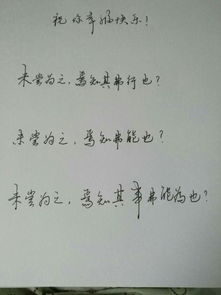 祝你幸福快乐！
未尝为之，焉知其弗行也？
未尝为之，焉知弗能也？
未尝为之，焉知其事弗能为也？